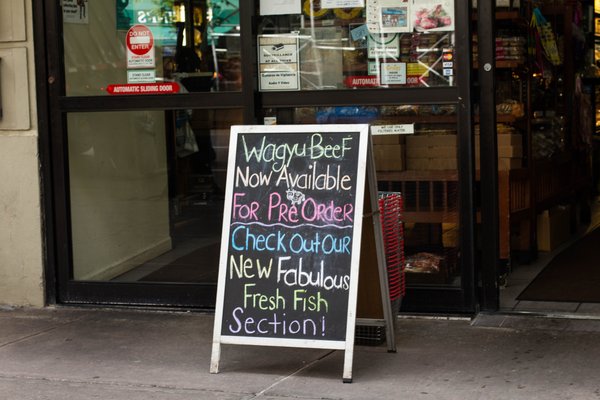 DO NOT
ENTER
AUTOMATIC SLIDING DOOR
AUTOMATIC SLIDING DOOR
Wagyu Beef
Now Available
For Pre Order
Check Out Our
New Fabulous
Fresh Fish
Section!